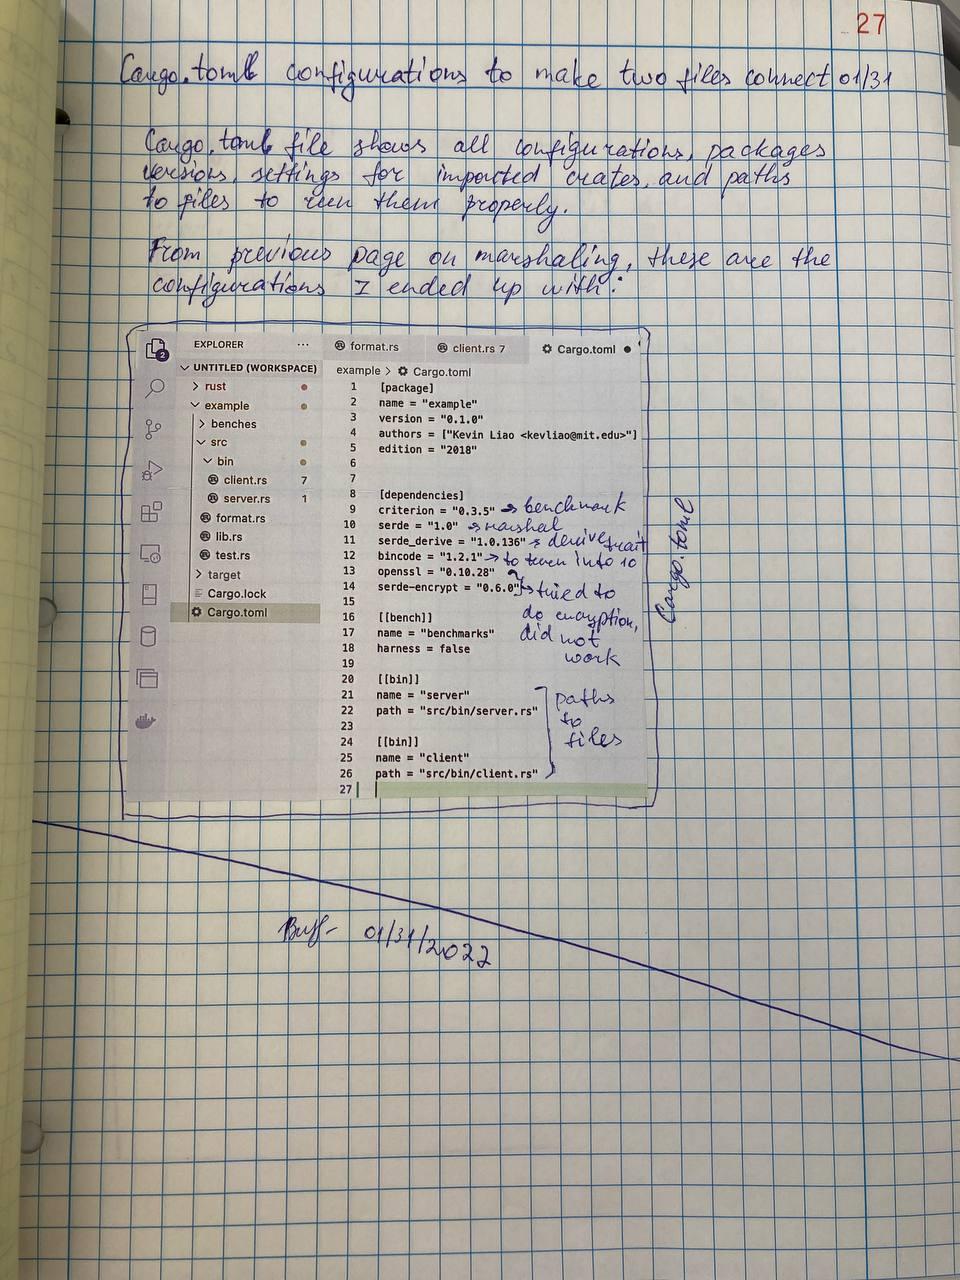 27
Cargo.toml configurations to make two files connect 01/31
Cargo.toml file shows all configurations, packages
versions, settings for imported crates, and paths
to files to run them properly.
From previous page on marshaling, these are the
configurations I ended up with:
EXPLORER ...
UNTITLED (WORKSPACE)
rust
example
benches
src
bin
client.rs 7
server.rs 1
format.rs
lib.rs
test.rs
target
Cargo.lock
Cargo.toml
2
format.rs client.rs 7 Cargo.toml
example > Cargo.toml
1 [package]
2 name = "example"
3 version = "0.1.0"
4 authors = ["Kevin Liao <kevliao@mit.edu>"]
5 edition = "2018"
6
7
8 [dependencies]
9 criterion = "0.3.5" → benchmark
10 serde = "1.0" → marshal
11 serde_derive = "1.0.136" → derive trait
12 bincode = "1.2.1" → to turn into 10
13 openssl = "0.10.28"
14 serde-encrypt = "0.6.0" → tried to
15
do encryption,
16 [[bench]]
17 name = "benchmarks" did not
18 harness = false work
19
20 [[bin]]
21 name = "server" paths
22 path = "src/bin/server.rs" to
23
24 [[bin]] files
25 name = "client"
26 path = "src/bin/client.rs"
27
Cargo.toml
01/31/2022